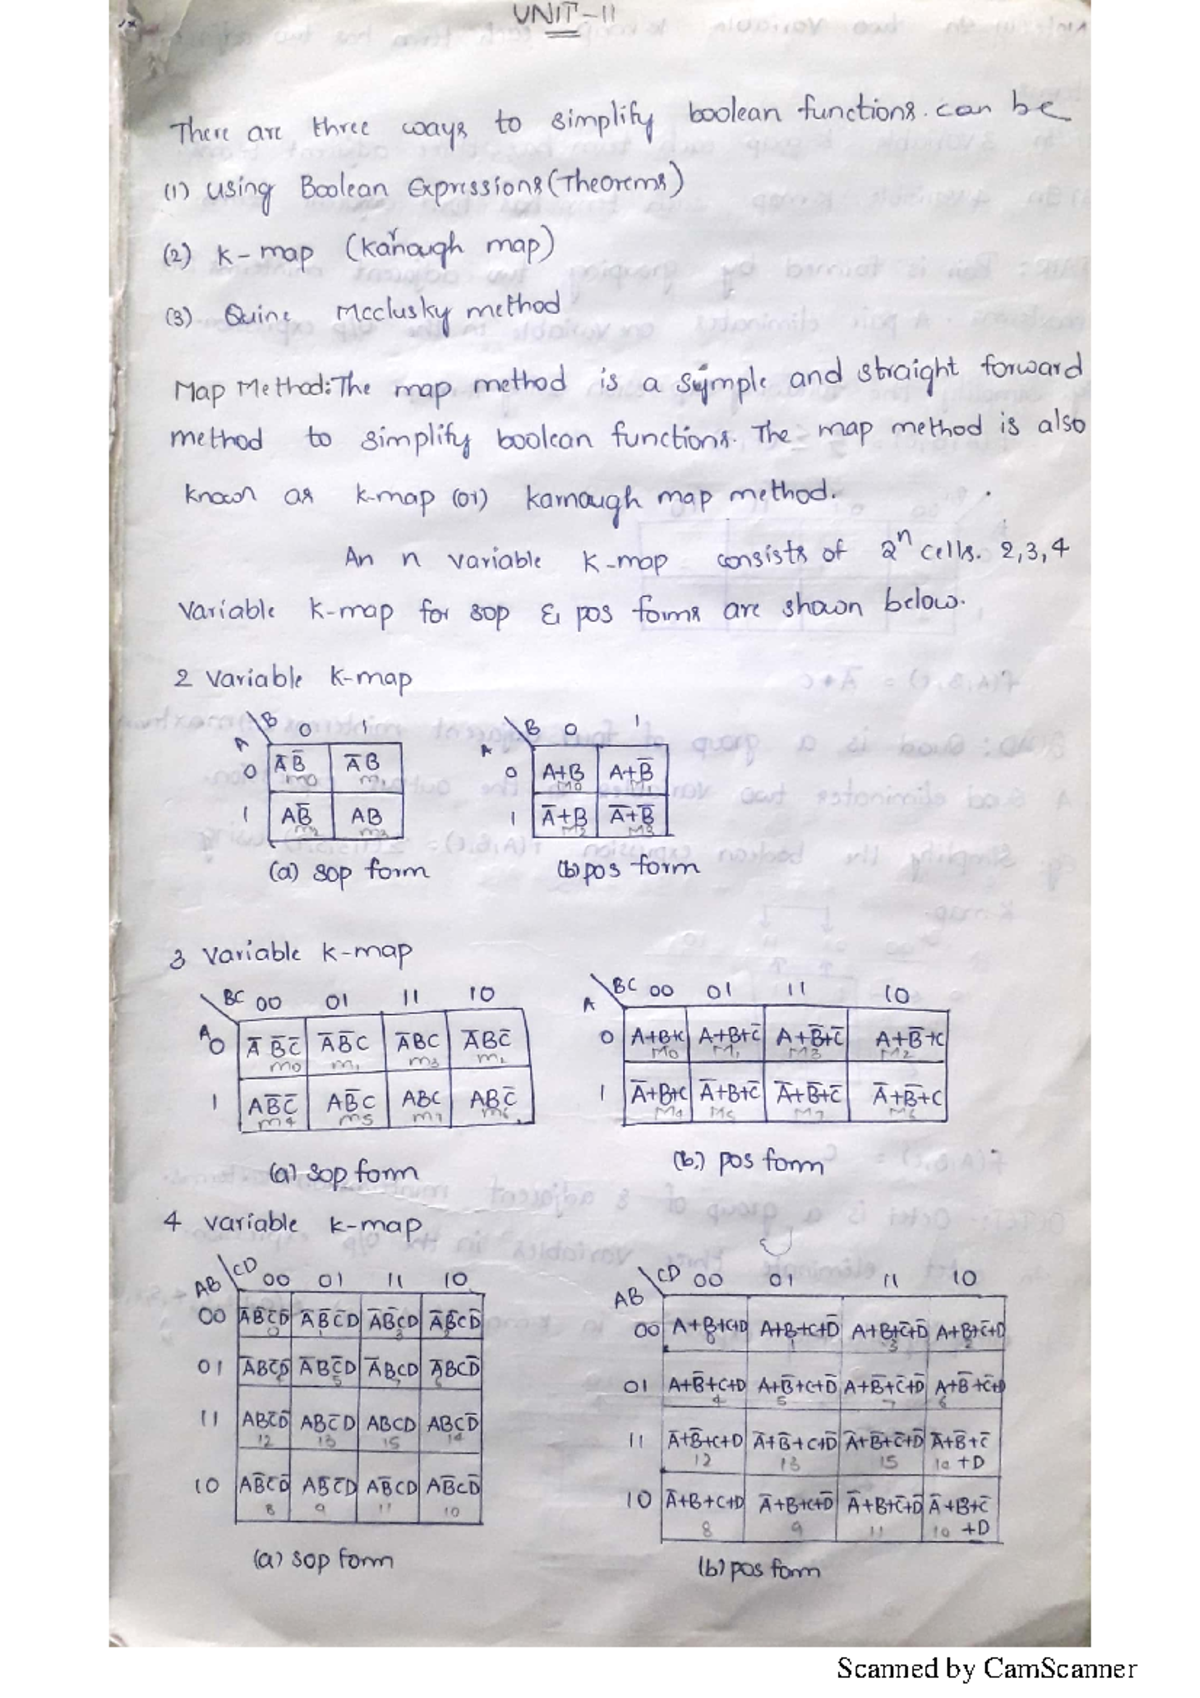 UNIT-II
There are three ways to simplify boolean functions. can be
(1) Using Boolean Expressions (Theorems)
(2) K-map (Karnaugh map)
(3) Quine Mcclusky method
Map Method: The map method is a symple and straight forward
method to simplify boolean functions. The map method is also
known as k-map (or) karnaugh map method.
An n variable K-map consists of 2ⁿ cells. 2,3,4
Variable K-map for sop & pos forms are shown below.
2 variable K-map
B 0 1
A
0 A̅B̅ m0 A̅B m1
1 AB̅ m2 AB m3
(a) sop form
B 0 1
A
0 A+B M0 A+B̅ M1
1 A̅+B M2 A̅+B̅ M3
(b) pos form
3 variable k-map
BC 00 01 11 10
A
0 A̅B̅C̅ m0 A̅B̅C m1 A̅BC m3 A̅BC̅ m2
1 AB̅C̅ m4 AB̅C m5 ABC m7 ABC̅ m6
(a) sop form
BC 00 01 11 10
A
0 A+B+C M0 A+B+C̅ M1 A+B̅+C̅ M3 A+B̅+C M2
1 A̅+B+C M4 A̅+B+C̅ M5 A̅+B̅+C̅ M7 A̅+B̅+C M6
(b) pos form
4 variable k-map
CD 00 01 11 10
AB
00 A̅B̅C̅D̅ 0 A̅B̅C̅D 1 A̅B̅CD 3 A̅B̅CD̅ 2
01 A̅BC̅D̅ A̅BC̅D 5 A̅BCD 7 A̅BCD̅ 6
11 ABC̅D̅ 12 ABC̅D 13 ABCD 15 ABCD̅ 14
10 AB̅C̅D̅ 8 AB̅C̅D 9 AB̅CD 11 AB̅CD̅ 10
(a) sop form
CD 00 01 11 10
AB
00 A+B+C+D 0 A+B+C+D̅ 1 A+B+C̅+D̅ 3 A+B+C̅+D 2
01 A+B̅+C+D 4 A+B̅+C+D̅ 5 A+B̅+C̅+D̅ 7 A+B̅+C̅+D 6
11 A̅+B̅+C+D 12 A̅+B̅+C+D̅ 13 A̅+B̅+C̅+D̅ 15 A̅+B̅+C̅+D 10
10 A̅+B+C+D 8 A̅+B+C+D̅ 9 A̅+B+C̅+D̅ 11 A̅+B+C̅+D 10
(b) pos form
Scanned by CamScanner